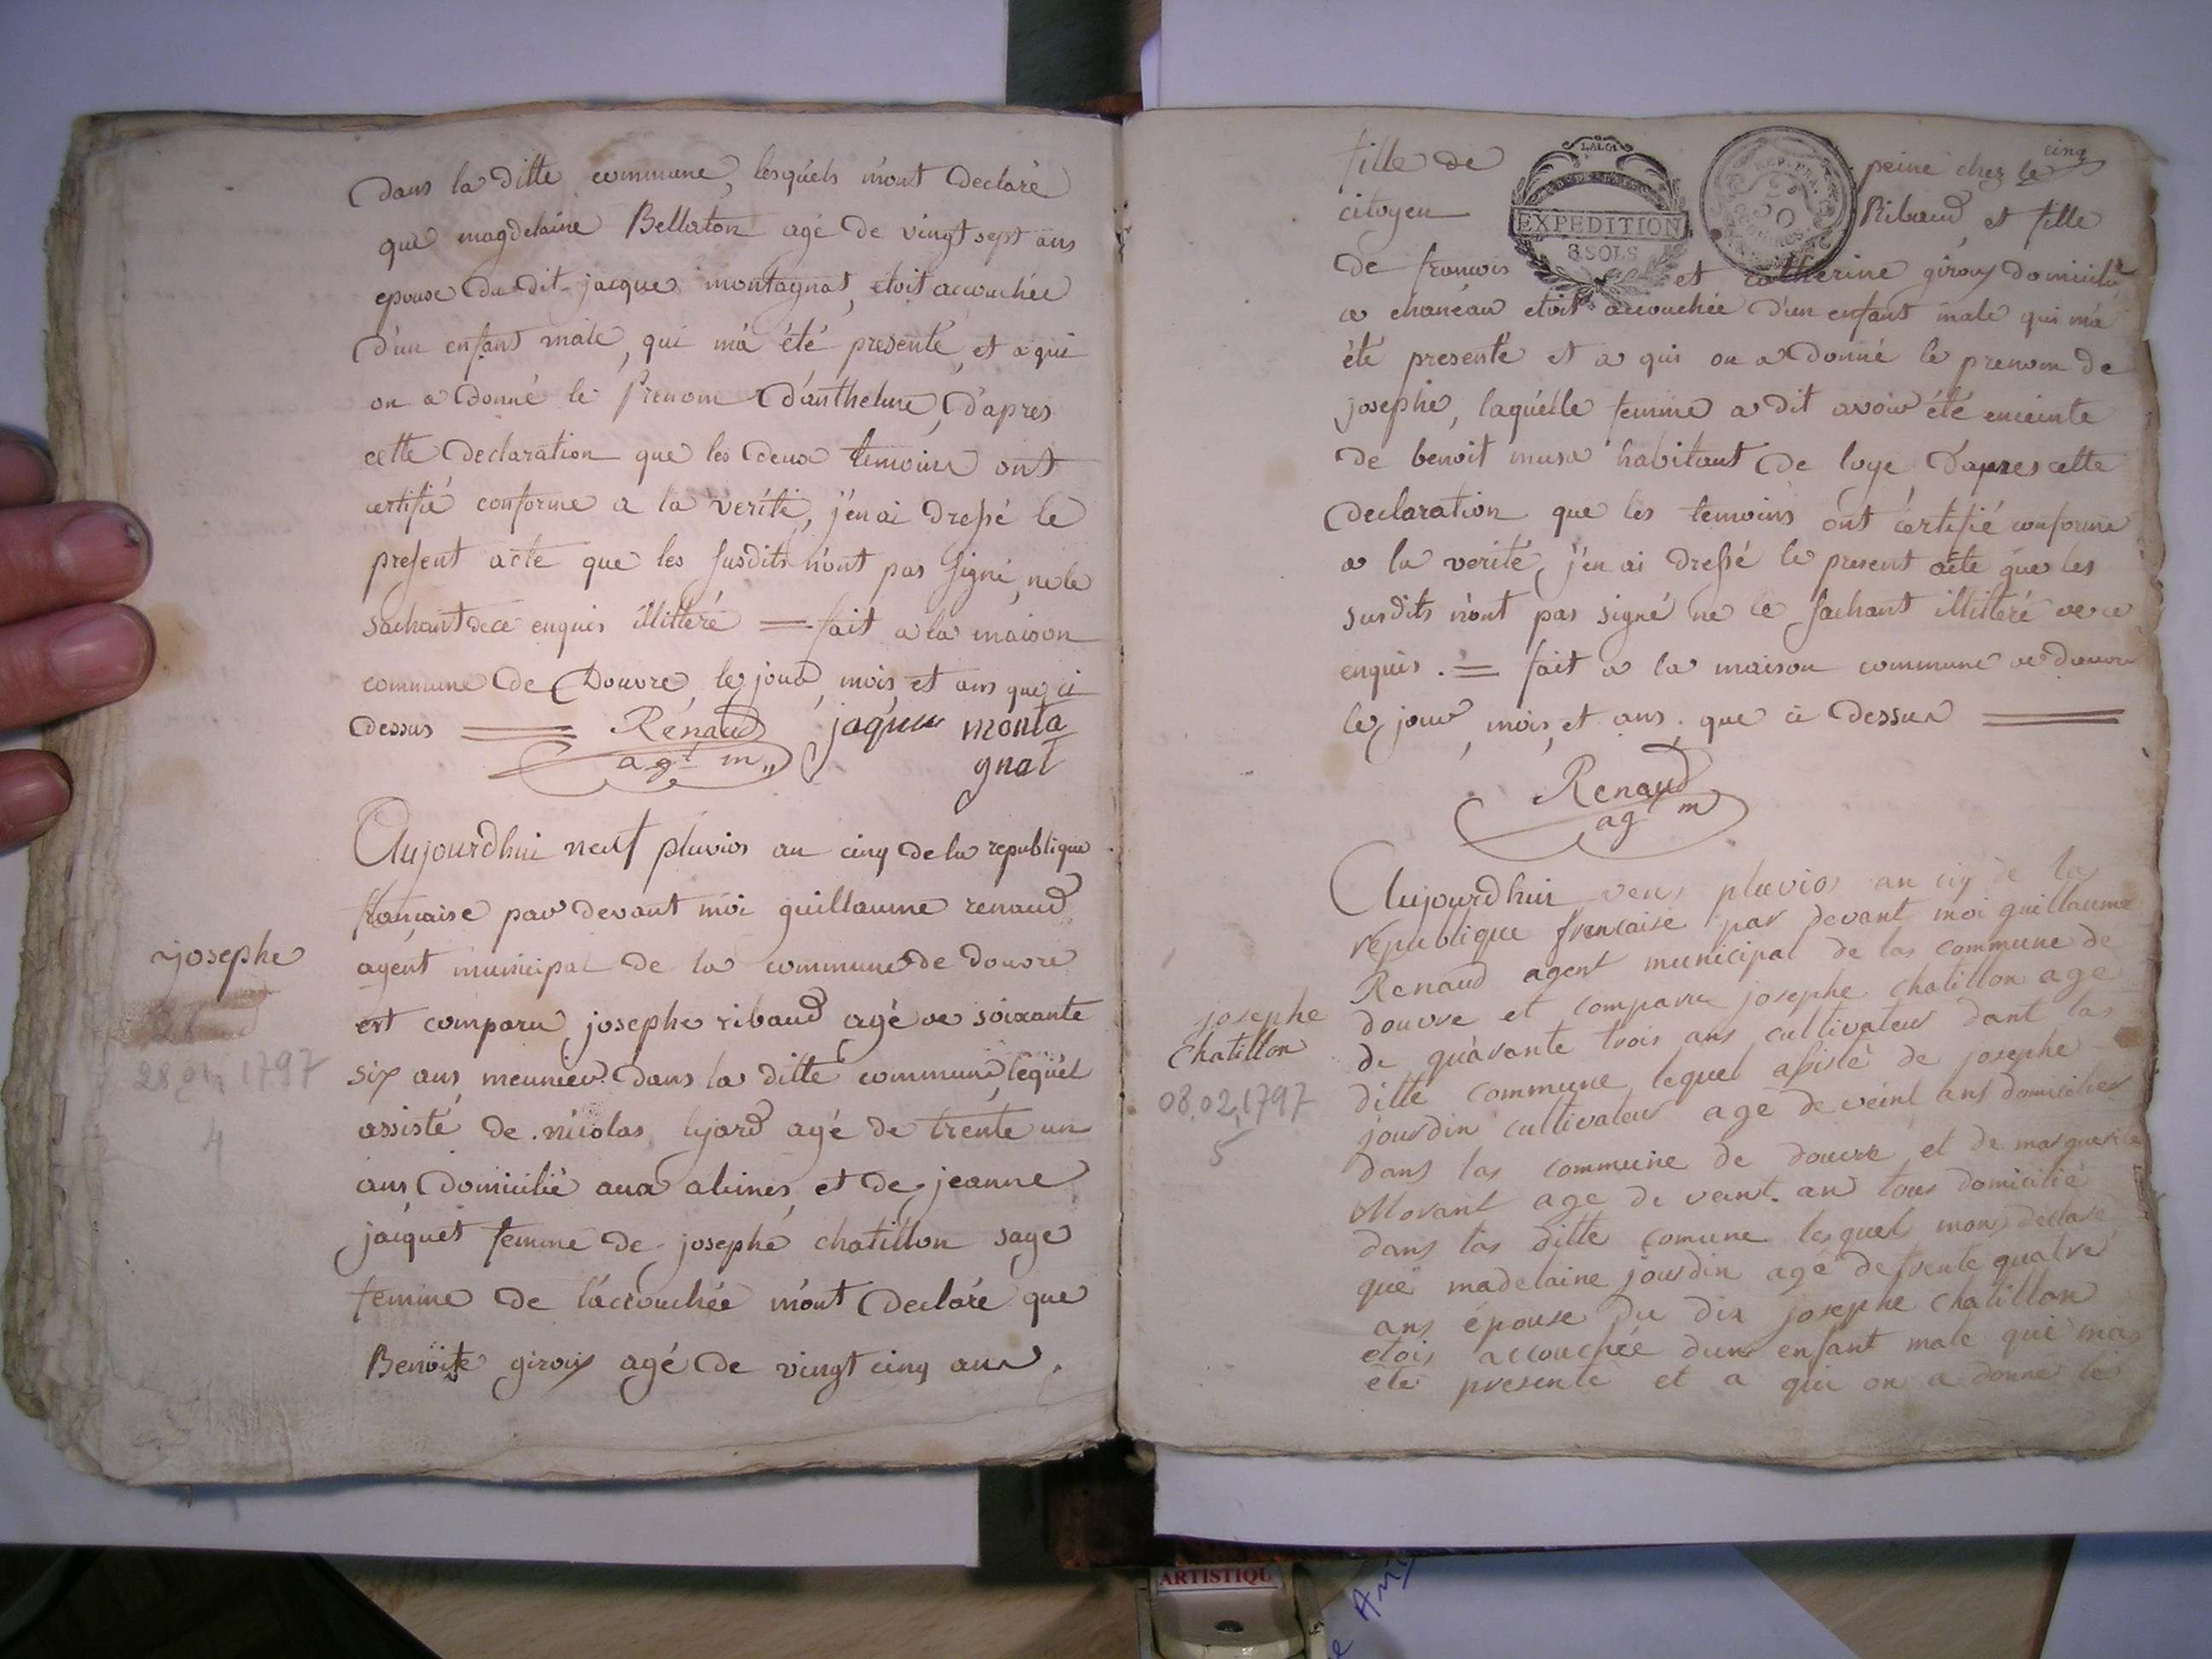 Dans la ditte commune, lesquels m'ont declaré
que magdelaine Bellaton agé de vingt sept ans
epouse du dit jacque montagnat, etoit accouchée
d'un enfant male, qui m'a été presenté, et a qui
on a donné le prenom d'anthelme, d'apres
cette declaration que les deux temoins ont
certifié conforme a la verité, j'en ai dressé le
present acte que les susdits n'ont pas signé, ne le
sachant de ce enquis illitéré = fait a la maison
commune de Douvre, le jour, mois et ans que ci
dessus = Rénaud jaque monta
agt m,, gnat
Aujourdhui neuf pluvios an cinq de la republique
française par devant moi guillaume renaud
agent municipal de la commune de douvre
josephe
est comparu josephe ribaud agé de soixante
six ans meunier dans la ditte commune, lequel
1797
assisté de nicolas lyard agé de trente un
4
ans domicilié aux alimes, et de jeanne
jacquet femme de josephe chatillon sage
femme de l'accouchée m'ont declaré que
Benoite giroux agé de vingt cinq ans
fille de peine chez le cinq
citoyen Ribaud, et fille
LA LOI
EXPEDITION
8 SOLS
REP. FRA.
50
de francois et catherine giroux domicilié
a chanéau etoit accouchée d'un enfant male qui m'a
été presenté et a qui on a donné le prenom de
josephe, laquelle femme a dit avoir été enceinte
de benoit musu habitant de loye d'apres cette
declaration que les temoins ont certifié conforme
a la verité, j'en ai dressé le present acte que les
susdits n'ont pas signé ne le sachant illitéré de ce
enquis. = fait a la maison commune de douvre
le jour, mois, et ans que ci dessus =
Renaud
agt m
Aujourdhui vens pluvios an ciq de la
republique francaise par devant moi guillaume
Renaud agent municipal de las commune de
josephe
Chatillon
08.02.1797
5
douvre et comparu josephe chatillon age
de quavante trois ans cultivateur dant las
ditte commune lequel asisté de josephe
jourdin cultivateur age de veint ans domicilier
dans las commune de douvre et de marguerite
Morant age de veint an tous domicilié
dans las ditte comune lesquels mons déclaré
que madelaine jourdin agé de trente quatre
ans épouse du dit josephe chatillon
etois accouchée dun enfant male qui mas
été presenté et a qui on a donné le
ARTISTIQU